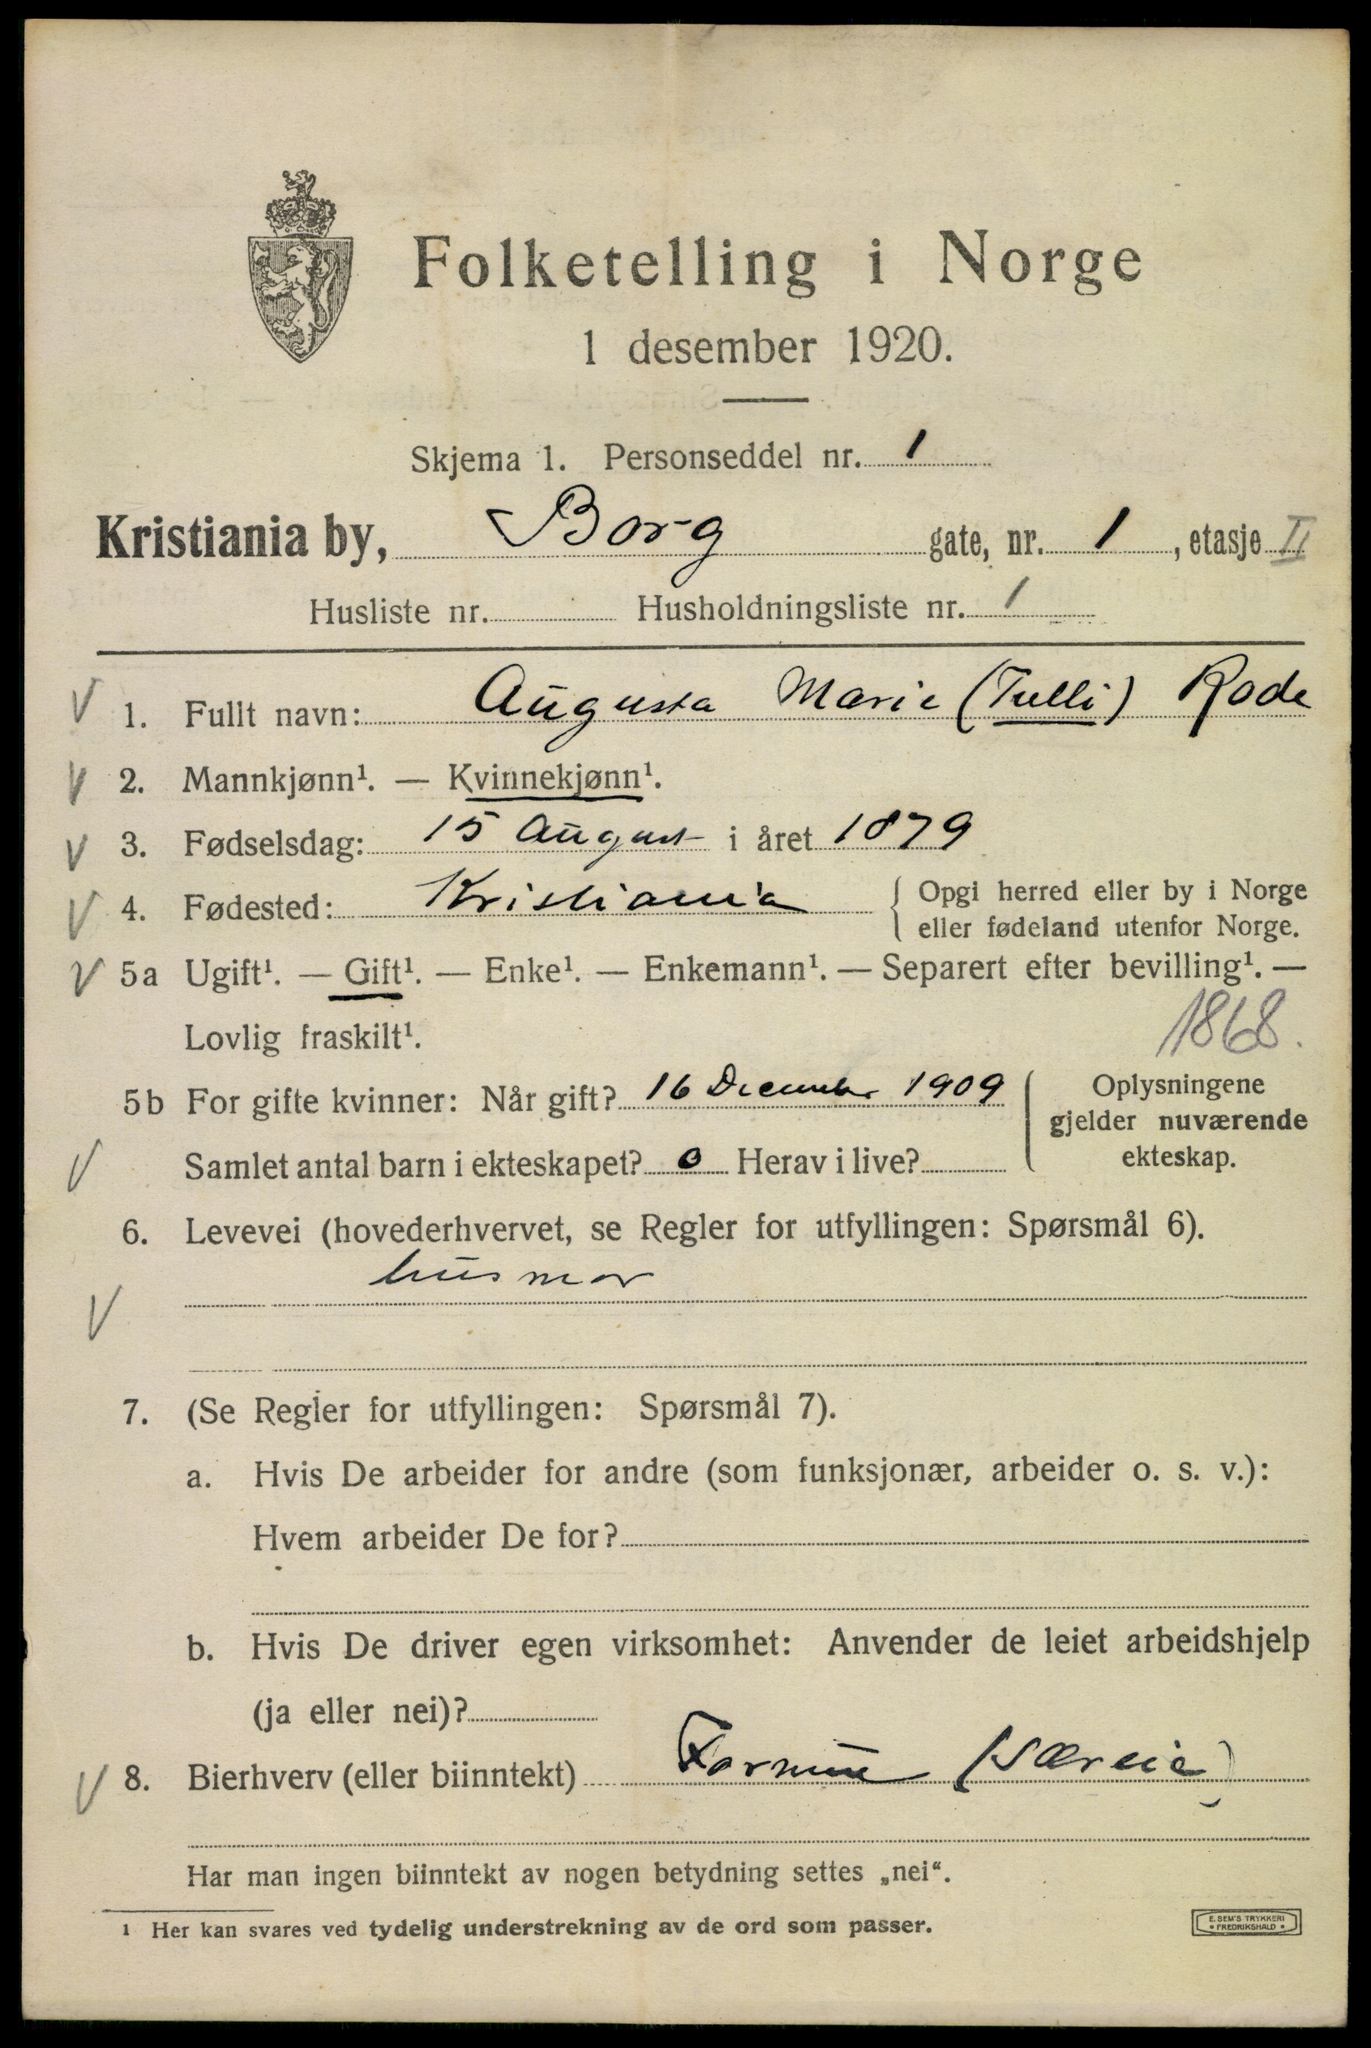 Folketelling i Norge
1 desember 1920.
Skjema 1. Personseddel nr. 1
Kristiania by, Borg gate, nr. 1, etasje II
Husliste nr. Husholdningsliste nr. 1
V 1. Fullt navn: Augusta Marie (Tulli) Rode
V 2. Mannkjønn¹. — Kvinnekjønn¹.
V 3. Fødselsdag: 15 August i året 1879
V 4. Fødested: Kristiania { Opgi herred eller by i Norge
eller fødeland utenfor Norge.
V 5a Ugift¹. — Gift¹. — Enke¹. — Enkemann¹. — Separert efter bevilling¹. —
Lovlig fraskilt¹. 1868.
5b For gifte kvinner: Når gift? 16 December 1909
V Samlet antal barn i ekteskapet? 0 Herav i live?
Oplysningene
gjelder nuværende
ekteskap.
6. Levevei (hovederhvervet, se Regler for utfyllingen: Spørsmål 6).
V husmor
7. (Se Regler for utfyllingen: Spørsmål 7).
a. Hvis De arbeider for andre (som funksjonær, arbeider o. s. v.):
Hvem arbeider De for?
b. Hvis De driver egen virksomhet: Anvender de leiet arbeidshjelp
(ja eller nei)?
V 8. Bierhverv (eller biinntekt) Formue (særeie)
Har man ingen biinntekt av nogen betydning settes „nei“.
1 Her kan svares ved tydelig understrekning av de ord som passer.
E. SEM'S TRYKKERI
* FREDRIKSHALD *